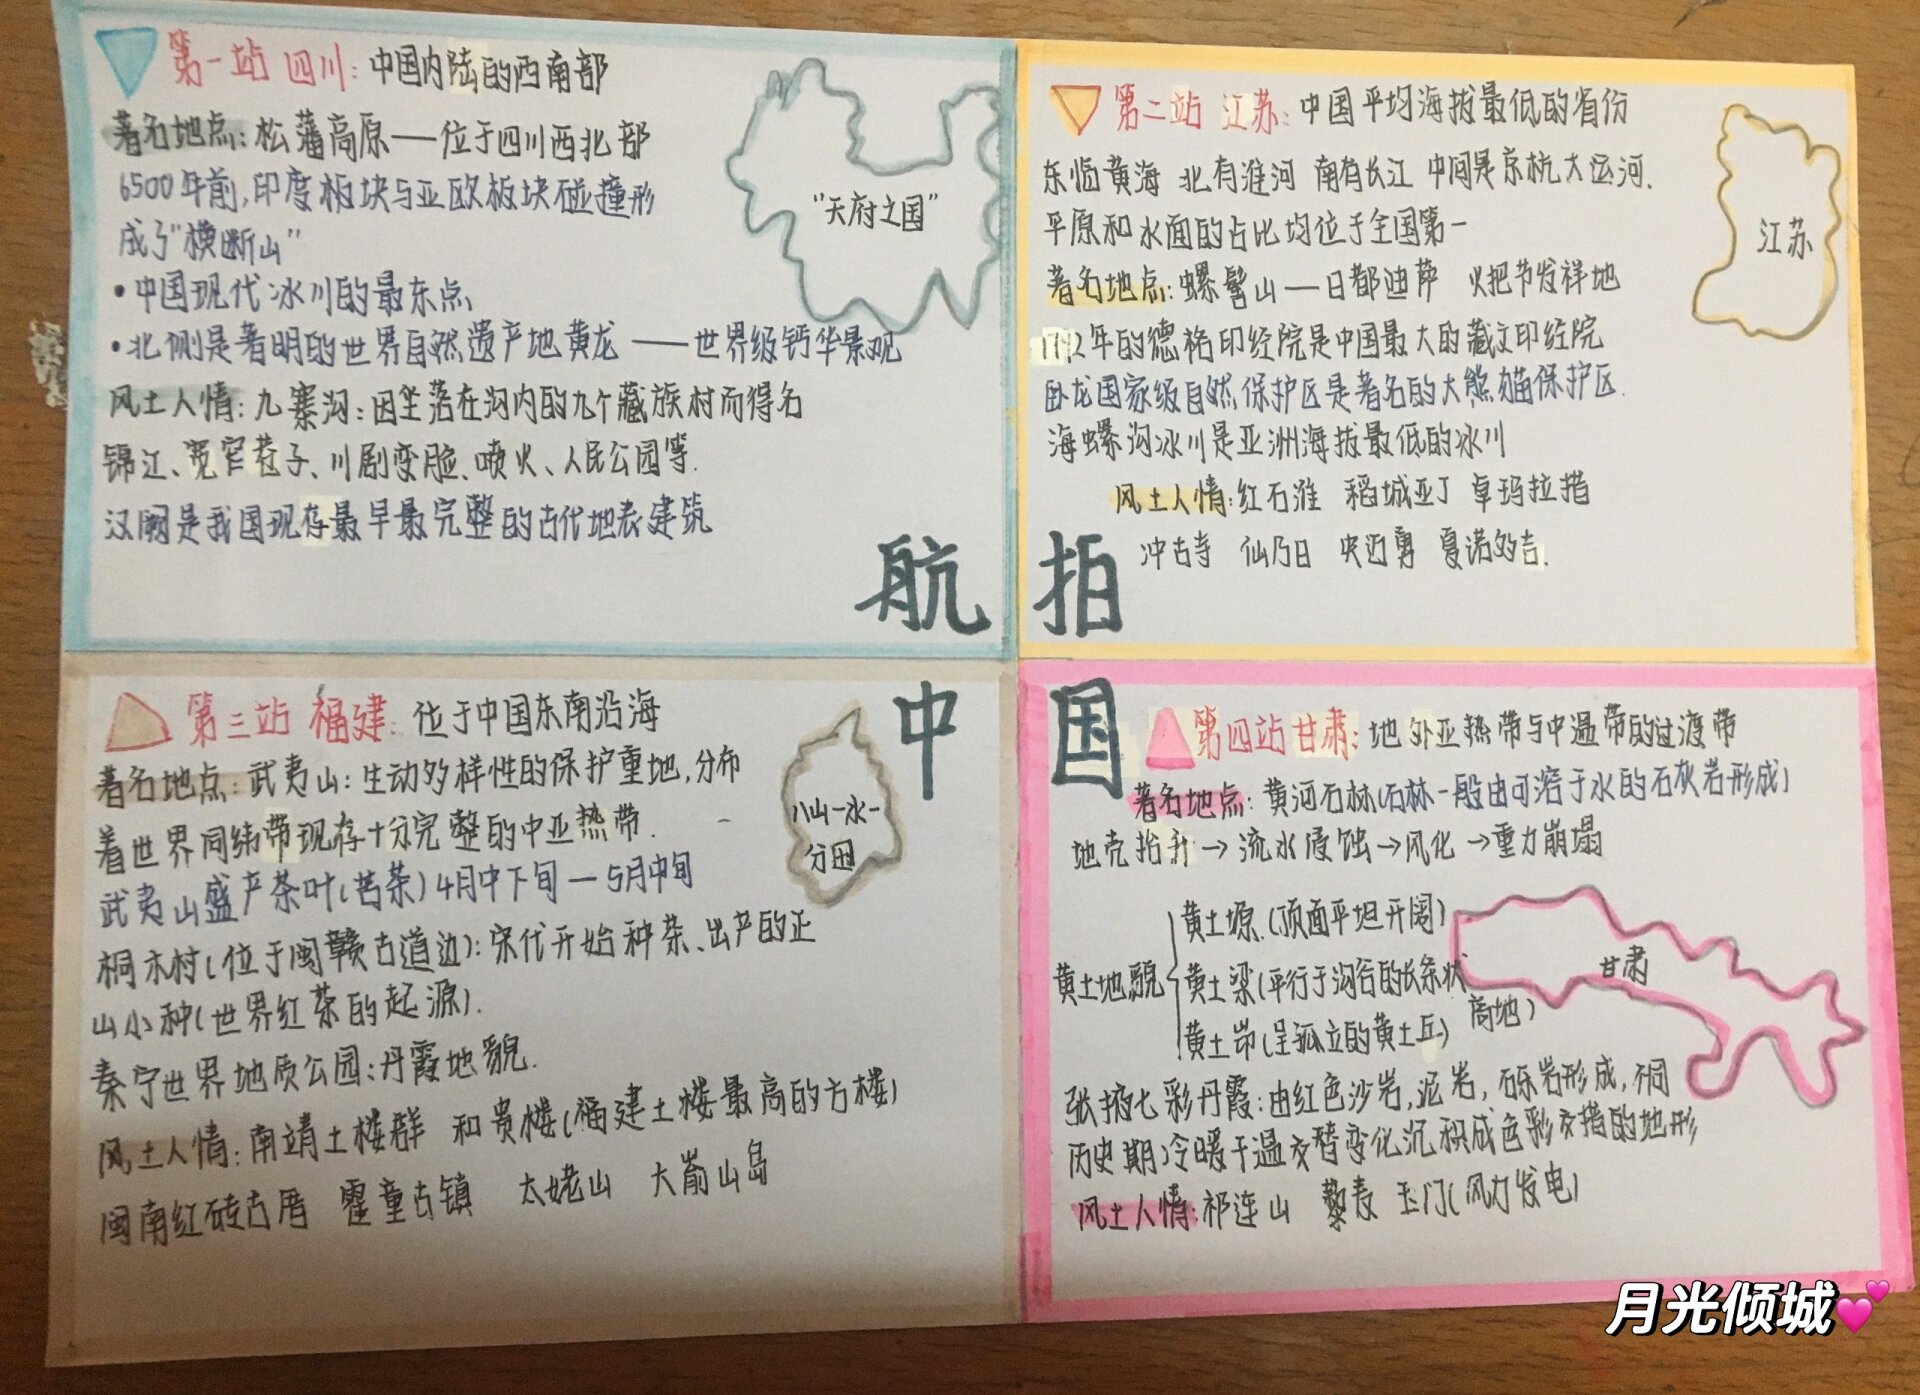 第一站 四川:中国内陆的西南部
著名地点:松藩高原——位于四川西北部
6500年前,印度板块与亚欧板块碰撞形
成了"横断山"
•中国现代冰川的最东点
•北侧是著明的世界自然遗产地黄龙——世界级钙华景观
风土人情:九寨沟:因坐落在沟内的九个藏族村而得名
锦江、宽窄巷子、川剧变脸、喷火、人民公园等.
汉阙是我国现存最早最完整的古代地表建筑
"天府之国"
航
第二站 江苏:中国平均海拔最低的省份
东临黄海 北有淮河 南有长江 中间是京杭大运河.
平原和水面的占比均位于全国第一
著名地点:螺髻山—日都迪萨 火把节发祥地
年的德格印经院是中国最大的藏文印经院
卧龙国家级自然保护区是著名的大熊猫保护区.
海螺沟冰川是亚洲海拔最低的冰川
风土人情:红石滩 稻城亚丁 卓玛拉措
冲古寺 仙乃日 央迈勇 夏诺多吉.
江苏
拍
第三站 福建:位于中国东南沿海
著名地点:武夷山:生动多样性的保护重地,分布
着世界同纬带现存十分完整的中亚热带.
武夷山盛产茶叶(苦茶)4月中下旬—5月中旬
桐木村(位于闽赣古道边):宋代开始种茶、出产的正
山小种(世界红茶的起源).
秦宁世界地质公园:丹霞地貌.
风土人情:南靖土楼群 和贵楼(福建土楼最高的方楼)
闽南红砖古厝 霍童古镇 太姥山 大嵛山岛
八山一水一
分田
中
国
第四站甘肃:地外亚热带与中温带的过渡带
著名地点:黄河石林(石林一般由可溶于水的石灰岩形成)
地壳抬升→流水侵蚀→风化→重力崩塌
黄土地貌
黄土塬.(顶面平坦开阔)
黄土梁(平行于沟谷的长条状
高地)
黄土峁(呈孤立的黄土丘)
甘肃
张掖七彩丹霞:由红色沙岩,泥岩,砾岩形成,不同
历史期冷暖干温交替变化沉积成色彩交措的地形
风土人情:祁连山 藜麦 玉门(风力发电)
月光倾城💕